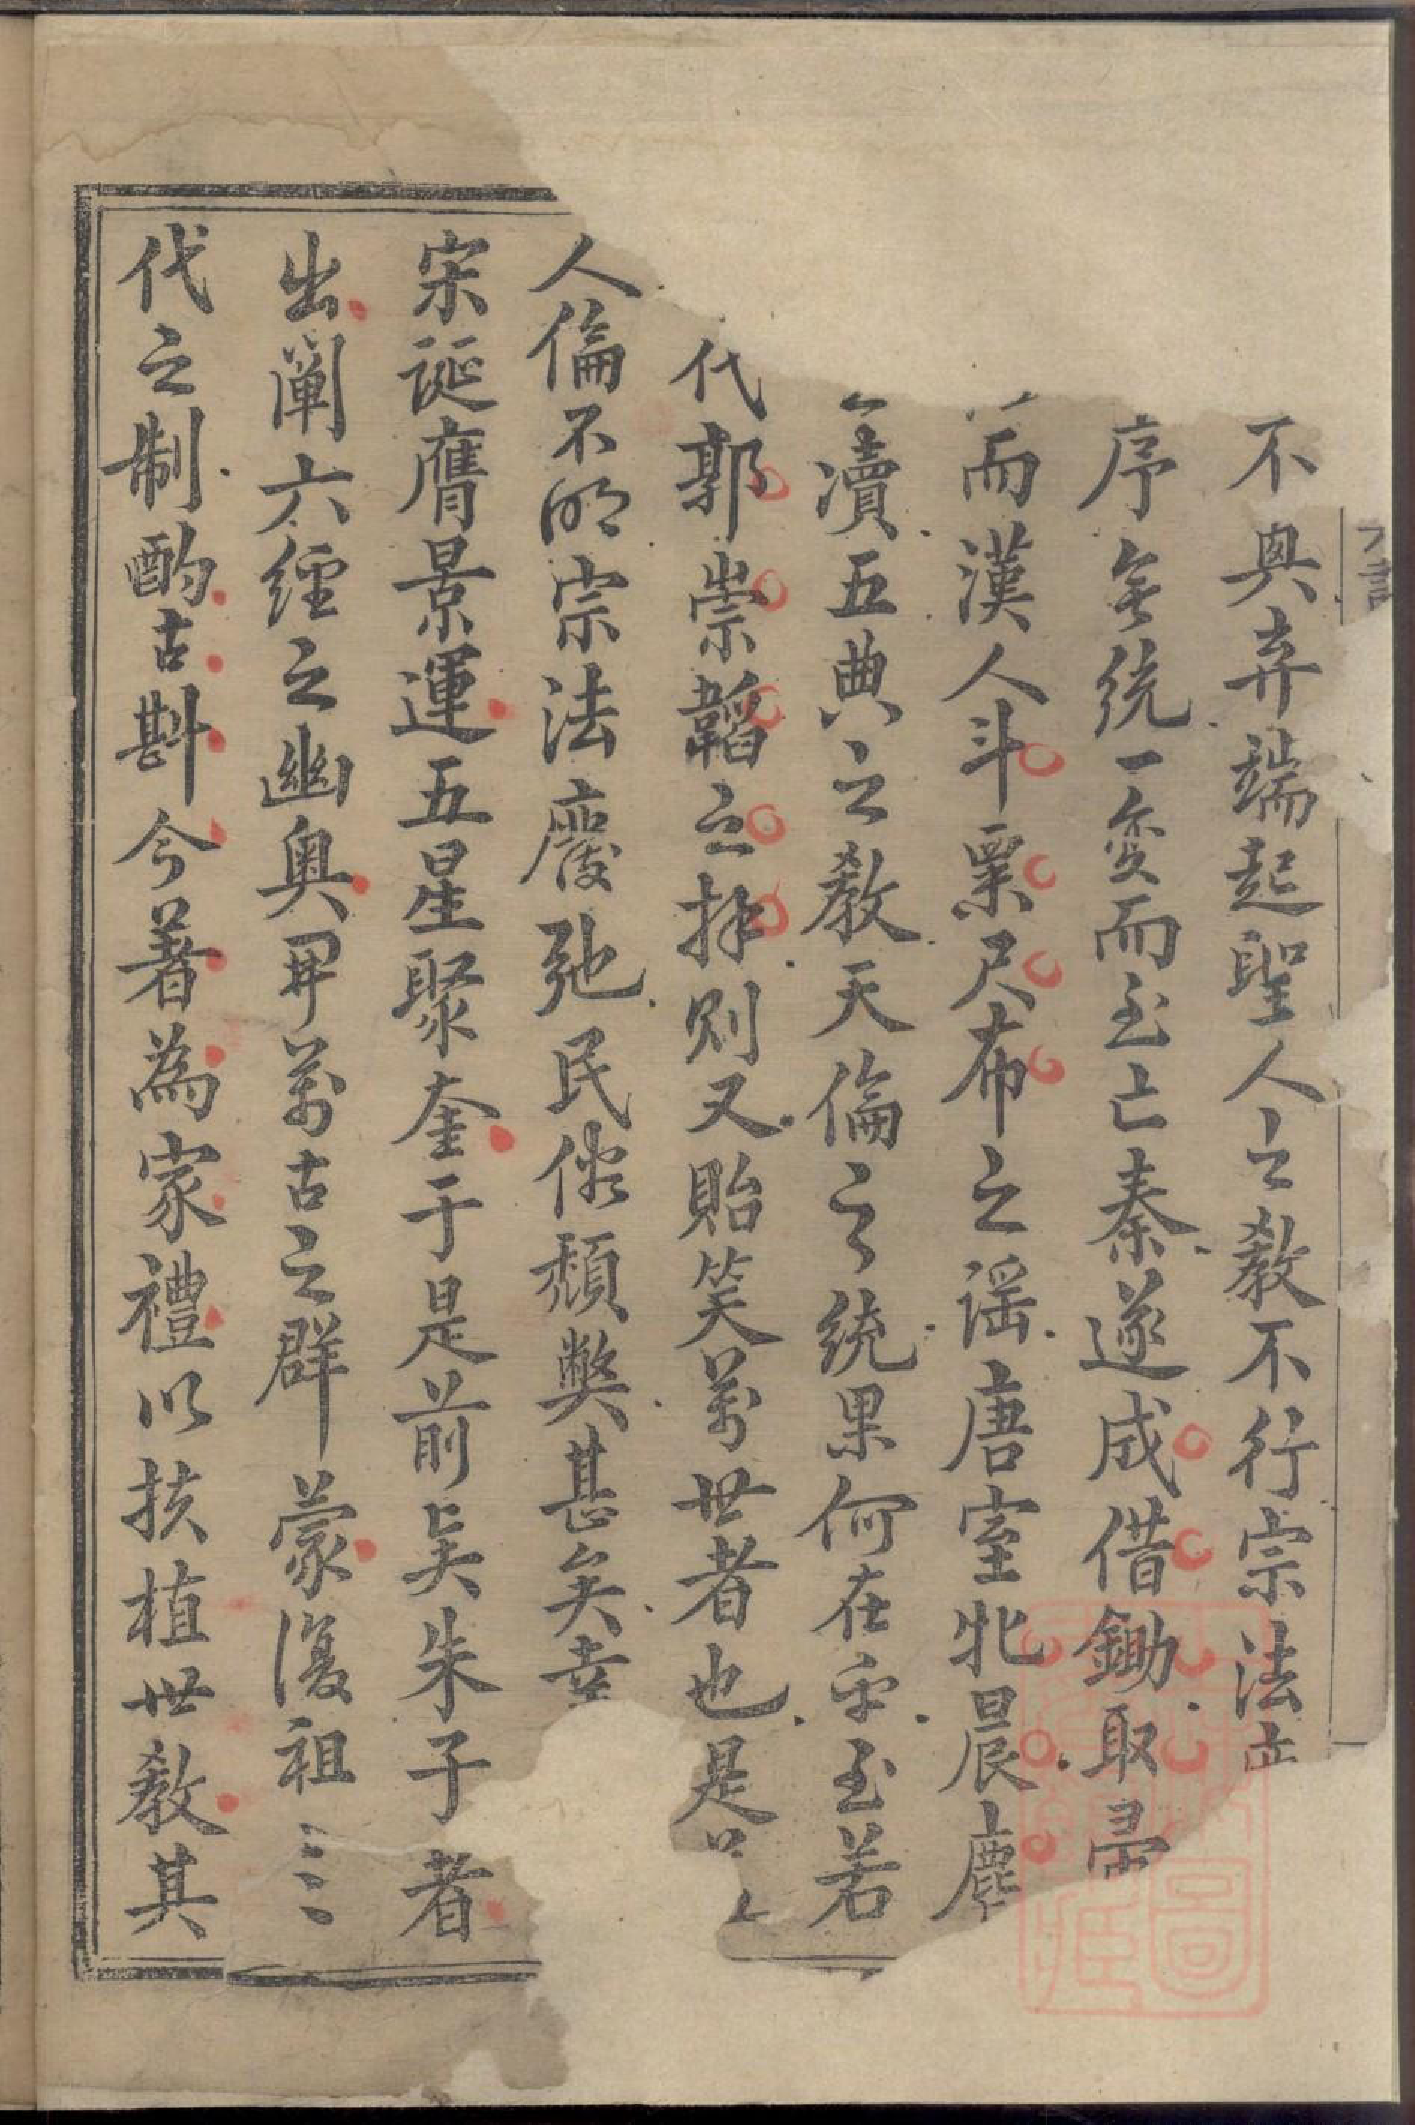 不興弃端起聖人之敎不行宗法
序無統一变而至亡秦遂成借鋤取
而漢人斗粟尺布之謡唐室牝晨
瀆五典之敎天倫之統果何在乎至若
代郭崇韜之拜則又貽笑萬世者也是
人倫不明宗法廢弛民俗頹弊甚矣幸
宋誕膺景運五星聚奎于是前矣朱子者
出闡六經之幽奥開萬古之群蒙復祖三
代之制酌古斟今著為家禮以扶植世敎其